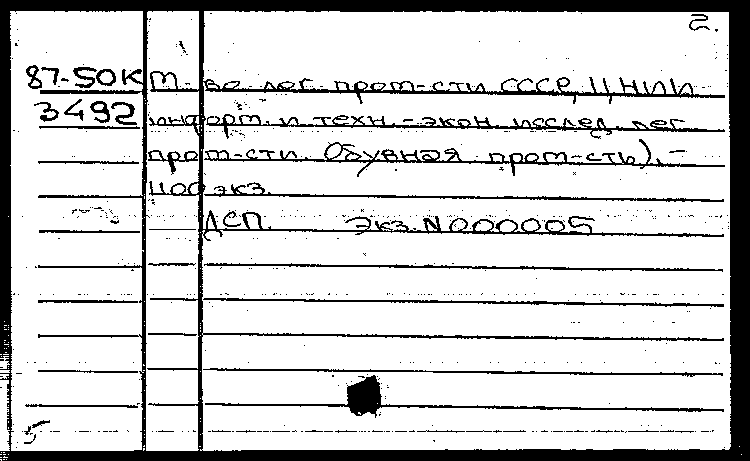 2.
87-50К М-во лег. пром-сти СССР, ЦНИИ
3492 информ. и техн.-экон. исслед. лег.
пром-сти. Обувная пром-сть). -
1100 экз.
ДСП. Экз. N000005
5